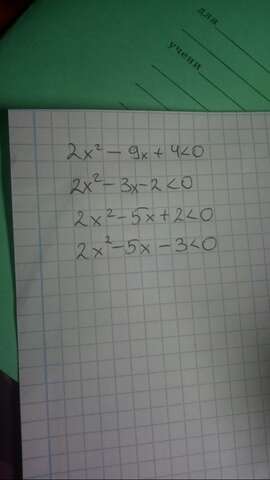 для
учени
2x² - 9x + 4<0
2x² - 3x - 2<0
2x² - 5x + 2<0
2x² - 5x - 3<0